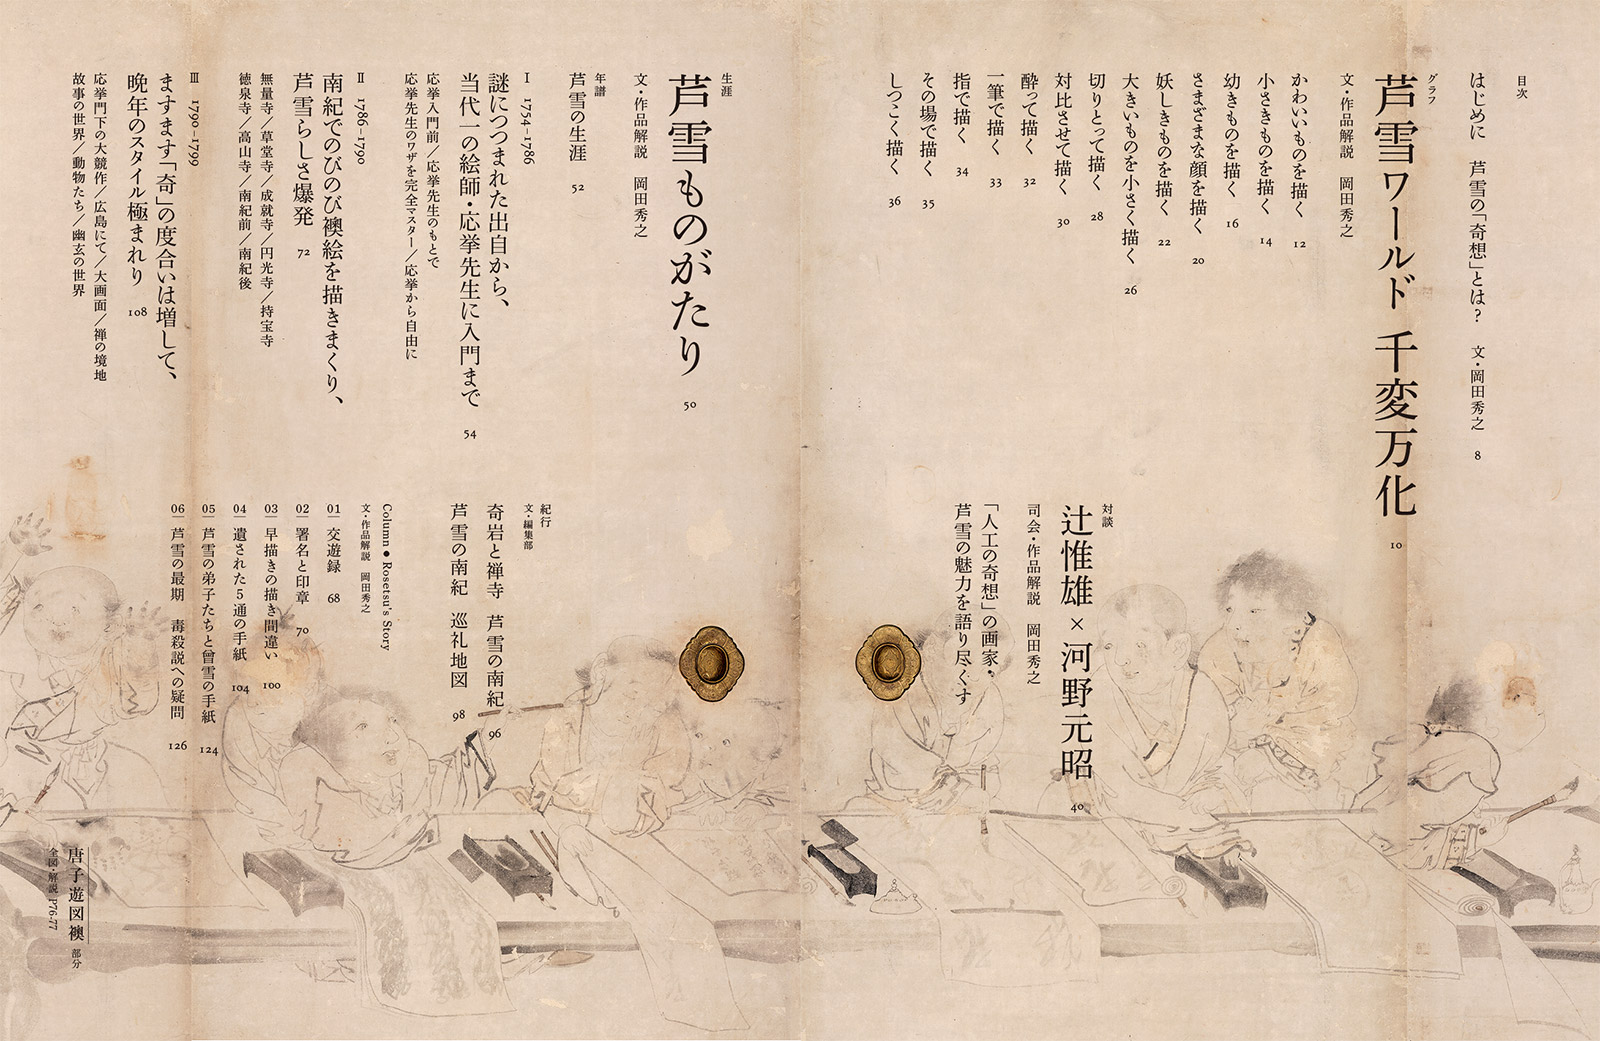 目次
はじめに 芦雪の「奇想」とは? 文・岡田秀之 8
グラフ
芦雪ワールド 千変万化 10
文・作品解説 岡田秀之
かわいいものを描く 12
小さきものを描く 14
幼きものを描く 16
さまざまな顔を描く 20
妖しきものを描く 22
大きいものを小さく描く 26
切りとって描く 28
対比させて描く 30
酔って描く 32
一筆で描く 33
指で描く 34
その場で描く 35
しつこく描く 36
対談
辻惟雄×河野元昭 40
司会・作品解説 岡田秀之
「人工の奇想」の画家・
芦雪の魅力を語り尽くす
生涯
芦雪ものがたり 50
文・作品解説 岡田秀之
年譜
芦雪の生涯 52
I 1754–1786
謎につつまれた出自から、
当代一の絵師・応挙先生に入門まで 54
応挙入門前/応挙先生のもとで
応挙先生のワザを完全マスター/応挙から自由に
II 1786–1790
南紀でのびのび襖絵を描きまくり、
芦雪らしさ爆発 72
無量寺/草堂寺/成就寺/円光寺/持宝寺
徳泉寺/高山寺/南紀前/南紀後
III 1790–1799
ますます「奇」の度合いは増して、
晩年のスタイル極まれり 108
応挙門下の大競作/広島にて/大画面/禅の境地
故事の世界/動物たち/幽玄の世界
紀行
文・編集部
奇岩と禅寺 芦雪の南紀 96
芦雪の南紀 巡礼地図 98
Column●Rosetsu's Story
文・作品解説 岡田秀之
01 交遊録 68
02 署名と印章 70
03 早描きの描き間違い 100
04 遺された5通の手紙 104
05 芦雪の弟子たちと曾雪の手紙 124
06 芦雪の最期 毒殺説への疑問 126
唐子遊図襖 部分
全図・解説 P76-77